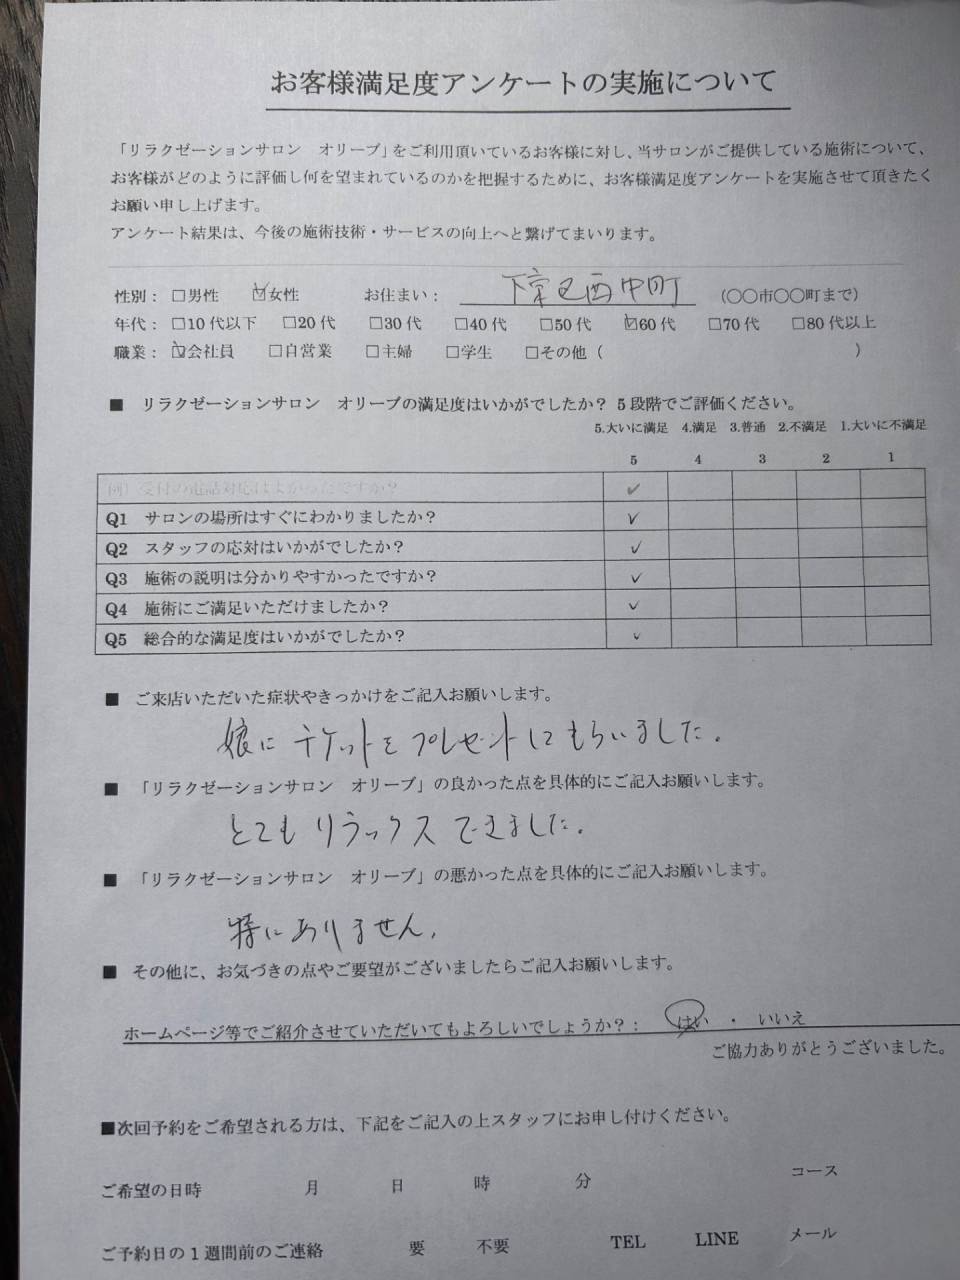 お客様満足度アンケートの実施について
「リラクゼーションサロン　オリーブ」をご利用頂いているお客様に対し、当サロンがご提供している施術について、
お客様がどのように評価し何を望まれているのかを把握するために、お客様満足度アンケートを実施させて頂きたく
お願い申し上げます。
アンケート結果は、今後の施術技術・サービスの向上へと繋げてまいります。
性別：□男性　☑女性　お住まい：　下京区西中町　（○○市○○町まで）
年代：□10 代以下　□20 代　□30 代　□40 代　□50 代　☑60 代　□70 代　□80 代以上
職業：☑会社員　□自営業　□主婦　□学生　□その他（　　　）
■　リラクゼーションサロン　オリーブの満足度はいかがでしたか？ 5 段階でご評価ください。
5.大いに満足　4.満足　3.普通　2.不満足　1.大いに不満足
5　4　3　2　1
例）受付の電話対応はよかったですか？　✓
Q1　サロンの場所はすぐにわかりましたか？　✓
Q2　スタッフの応対はいかがでしたか？　✓
Q3　施術の説明は分かりやすかったですか？　✓
Q4　施術にご満足いただけましたか？　✓
Q5　総合的な満足度はいかがでしたか？　✓
■　ご来店いただいた症状やきっかけをご記入お願いします。
娘にチケットをプレゼントしてもらいました。
■　「リラクゼーションサロン　オリーブ」の良かった点を具体的にご記入お願いします。
とてもリラックスできました。
■　「リラクゼーションサロン　オリーブ」の悪かった点を具体的にご記入お願いします。
特にありません。
■　その他に、お気づきの点やご要望がございましたらご記入お願いします。
ホームページ等でご紹介させていただいてもよろしいでしょうか？：　はい　・　いいえ
ご協力ありがとうございました。
■次回予約をご希望される方は、下記をご記入の上スタッフにお申し付けください。
ご希望の日時　月　日　時　分　コース
ご予約日の 1 週間前のご連絡　要　不要　TEL　LINE　メール